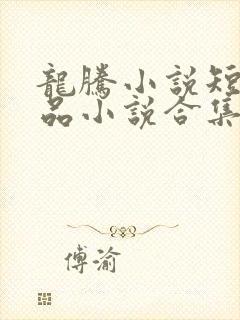 龍騰小說短
品小說合集
傅渝